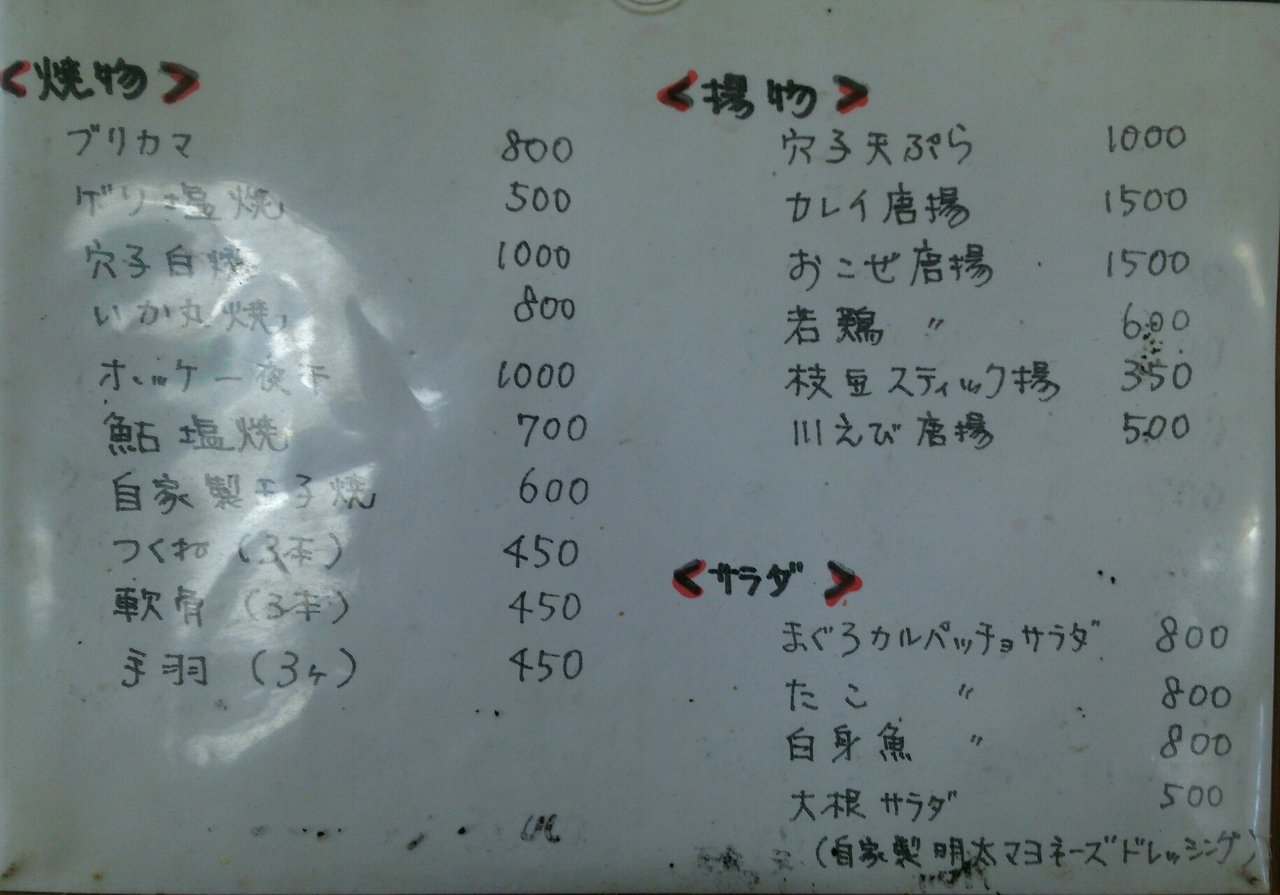 <焼物>
ブリカマ 800
ゲソ塩焼 500
穴子白焼 1000
いか丸焼 800
ホッケ一夜干 1000
鮎塩焼 700
自家製玉子焼 600
つくね(3本) 450
軟骨(3本) 450
手羽(3ヶ) 450
<揚物>
穴子天ぷら 1000
カレイ唐揚 1500
おこぜ唐揚 1500
若鶏 〃 600
枝豆スティック揚 350
川えび唐揚 500
<サラダ>
まぐろカルパッチョサラダ 800
たこ 〃 800
白身魚 〃 800
大根サラダ 500
(自家製明太マヨネーズドレッシング)